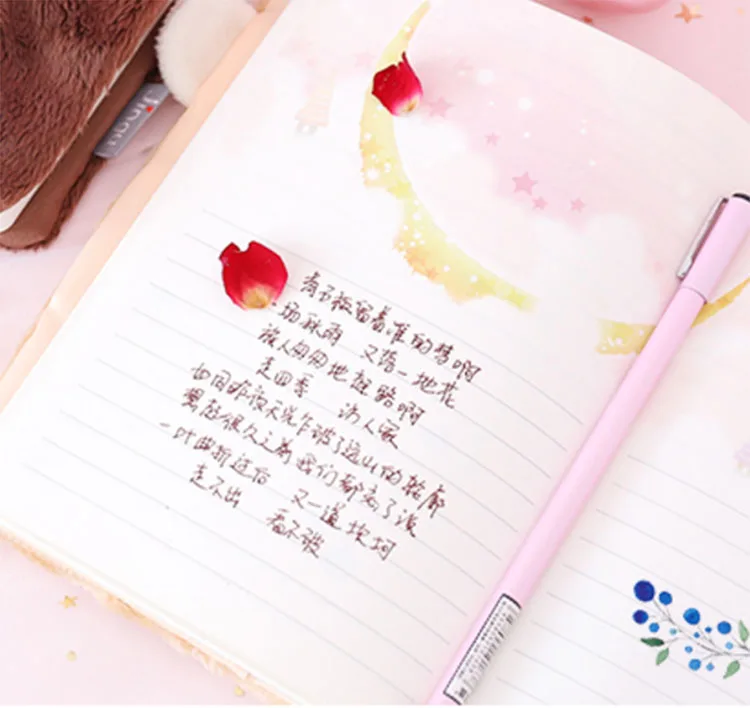 Jinou
青石板留着谁的梦啊
一场秋雨 又落一地花
旅人匆匆地赶路啊
走四季 访人家
如同昨夜天光乍破了远山的轮廓
想起很久之前我们都忘了说
一叶曲折过后 又一道坎坷
走不出 看不破